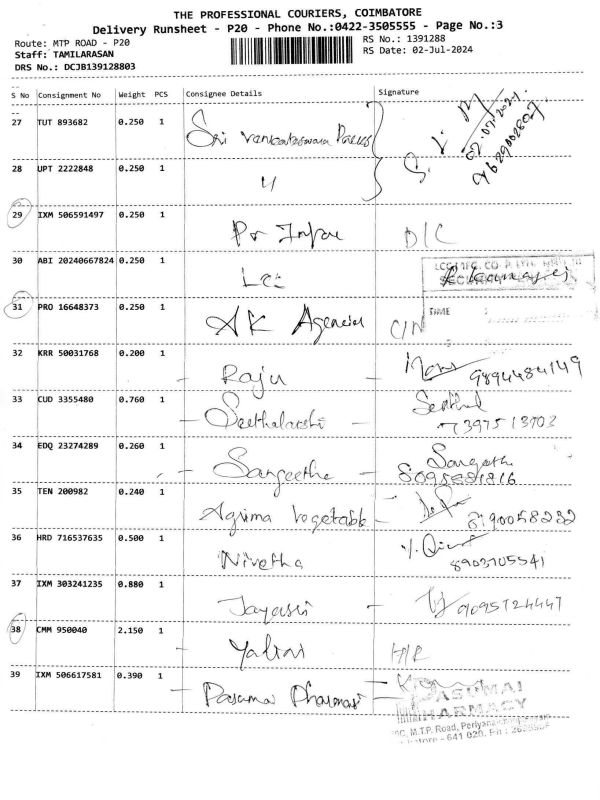 THE PROFESSIONAL COURIERS, COIMBATORE
Delivery Runsheet - P20 - Phone No.:0422-3505555 - Page No.:3
Route: MTP ROAD - P20
RS No.: 1391288
Staff: TAMILARASAN
RS Date: 02-Jul-2024
DRS No.: DCJB139128803
S No Consignment No Weight PCS Consignee Details Signature
27 TUT 893682 0.250 1 Sri Venkateswara
S. V. M
02.07.2024
28 UPT 2222848 0.250 1 "
29 IXM 506591497 0.250 1 D/C
30 ABI 20240667824 0.250 1
SECURITY
TIME
31 PRO 16648373 0.250 1 AK Agencies C/N
32 KRR 50031768 0.200 1 - Raju -
9894484149
33 CUD 3355480 0.760 1 - Seethalakshi - Senthil
34 EDQ 23274289 0.260 1 - Sangeetha - Sangeetha
35 TEN 200982 0.240 1 Agrima Vegetable -
8190058232
36 HRD 716537635 0.500 1 Nivetha
8903105541
37 IXM 303241235 0.880 1 Jayasri - 9095724447
38 CMM 950040 2.150 1 Yalini
39 IXM 506617581 0.390 1 - Pasumai Pharmasi -
PASUMAI
PHARMACY
M.T.P. Road,
641 020.